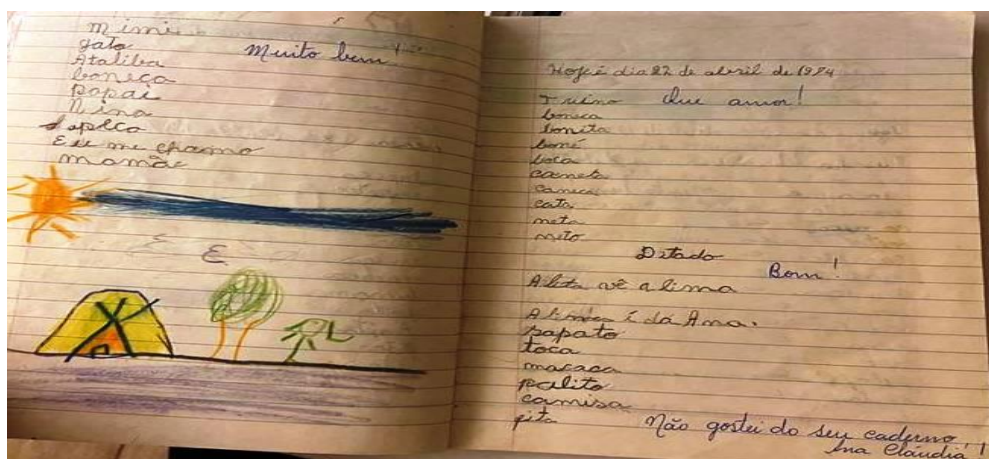 mimi
gato Muito bem!
Ataliba
boneca
papai
Nina
sapeca
Eu me chamo
mamãe
Hoje é dia 22 de abril de 1974
Treino Que amor!
boneca
bonita
boné
boca
caneta
caneca
cata
neta
neto
Ditado
Bom!
vê a lima
da Ana.
sapato
toca
macaca
palito
camisa
pita
Não gostei do seu caderno, !
Ana Cláudia